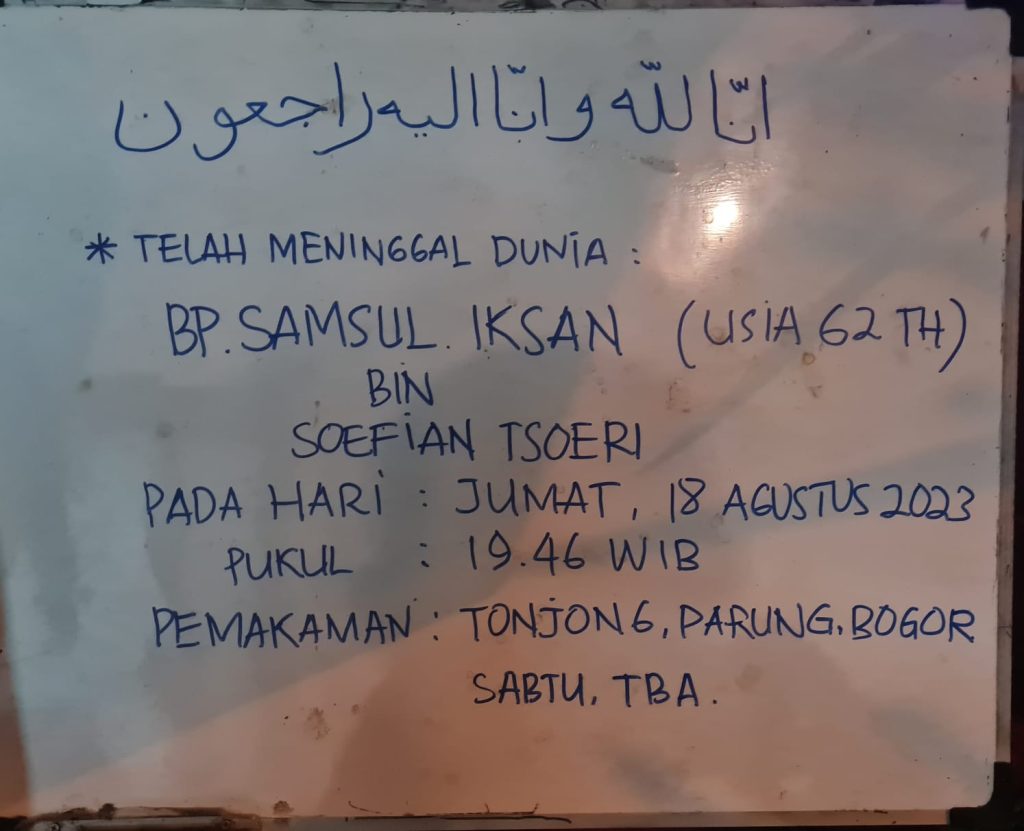 انّا للّه وانّا اليه راجعون
* TELAH MENINGGAL DUNIA :
BP. SAMSUL. IKSAN (USIA 62 TH)
BIN
SOEFIAN TSOERI
PADA HARI : JUMAT, 18 AGUSTUS 2023
PUKUL : 19.46 WIB
PEMAKAMAN : TONJONG, PARUNG, BOGOR
SABTU, TBA.